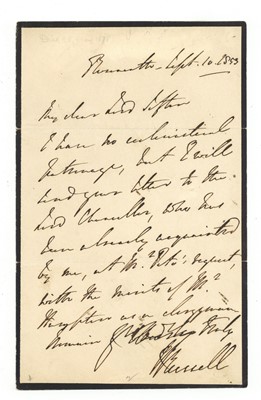 Sept. 10. 1853
My dear Lord Sefton
I have no ecclesiastical
patronage, but I will
send your letter to the
Lord Chancellor, who has
been already acquainted
by me, at Mr. request,
with the merits of Mr.
as a clergyman
I remain Yr Lordship's truly
J Russell